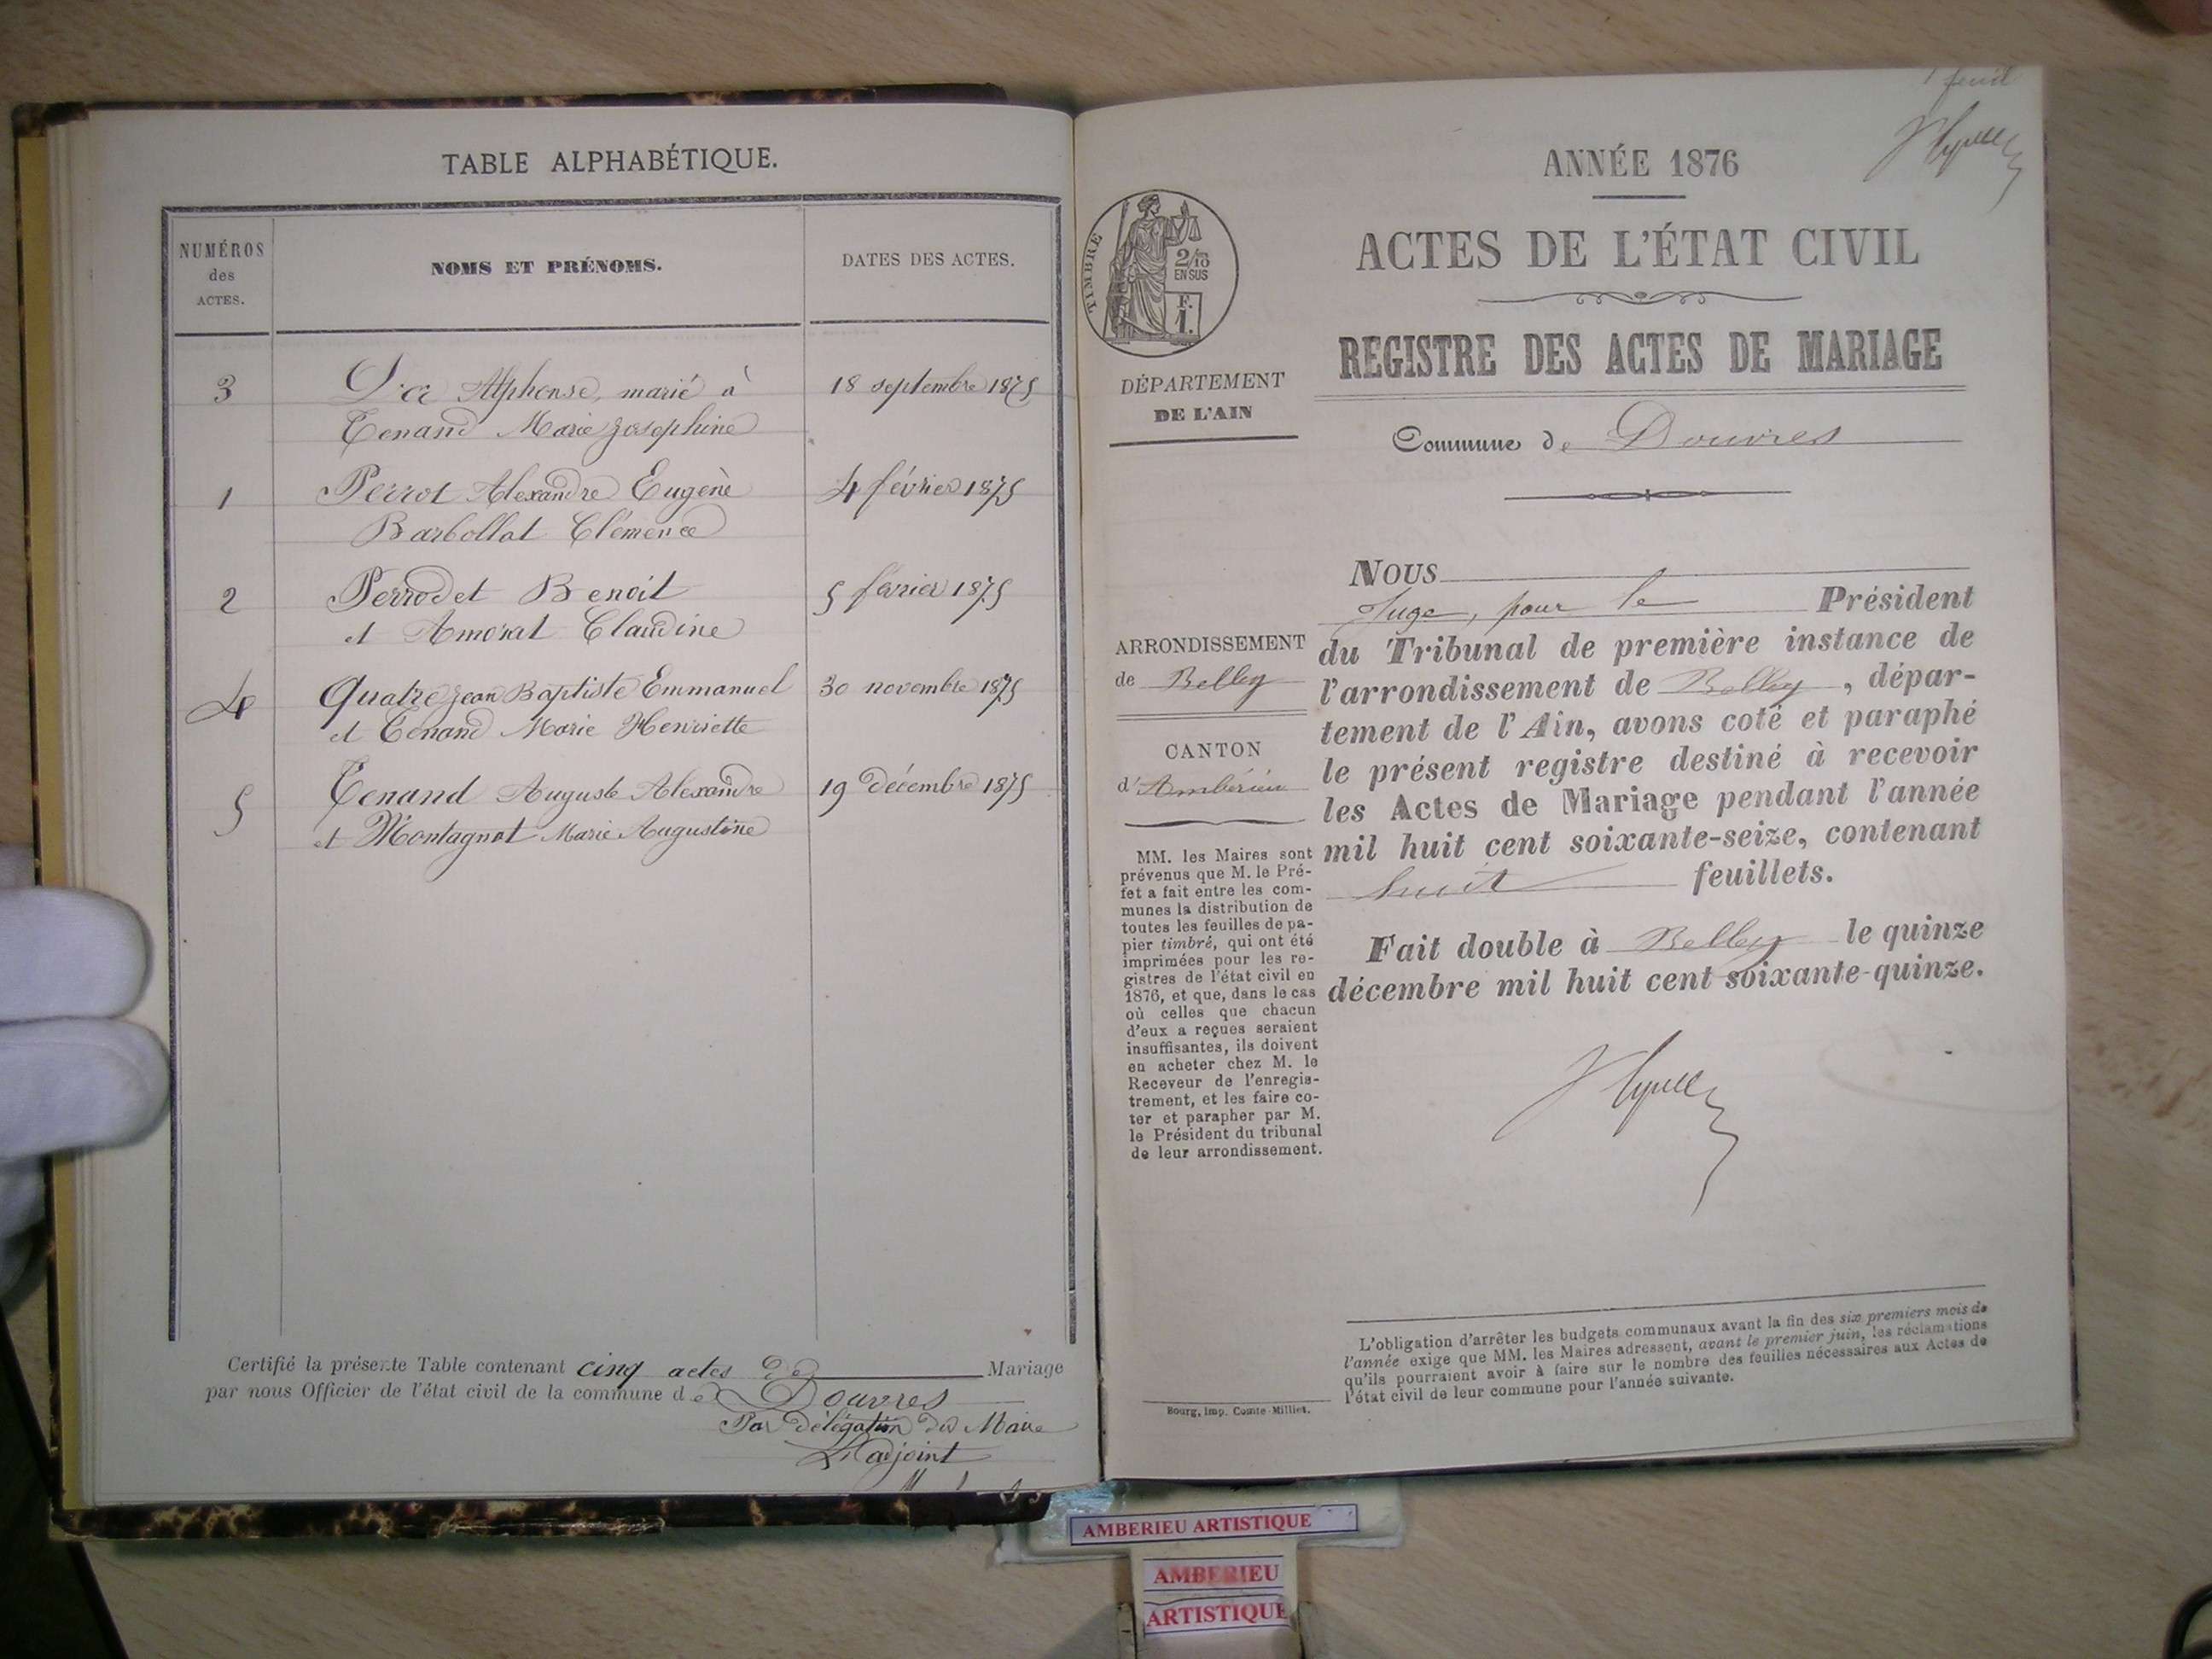 TABLE ALPHABÉTIQUE.
NUMÉROS
des
ACTES.
NOMS ET PRÉNOMS.
DATES DES ACTES.
3 Alphonse, marié à 18 septembre 1875
Tenand Marie Josephine
1 Perrot Alexandre Eugène 4 février 1875
Barbollat Clémence
2 Perrodet Benoit 5 février 1875
et Amorat Claudine
4 Quatre Jean Baptiste Emmanuel 30 novembre 1875
et Tenand Marie Henriette
5 Tenand Auguste Alexandre 19 décembre 1875
et Montagnat Marie Augustine
Certifié la présente Table contenant cinq actes de Mariage
par nous Officier de l'état civil de la commune de Douvres
Par délégation du Maire
L'adjoint
1 feuil
ANNÉE 1876
ACTES DE L'ÉTAT CIVIL
REGISTRE DES ACTES DE MARIAGE
Commune de Douvres
TIMBRE
2/10
EN SUS
F.
1.
DÉPARTEMENT
DE L'AIN
ARRONDISSEMENT
de Belley
CANTON
d'Ambérieu
MM. les Maires sont
prévenus que M. le Pré-
fet a fait entre les com-
munes la distribution de
toutes les feuilles de pa-
pier timbré, qui ont été
imprimées pour les re-
gistres de l'état civil en
1876, et que, dans le cas
où celles que chacun
d'eux a reçues seraient
insuffisantes, ils doivent
en acheter chez M. le
Receveur de l'enregis-
trement, et les faire co-
ter et parapher par M.
le Président du tribunal
de leur arrondissement.
NOUS
Juge, pour le Président
du Tribunal de première instance de
l'arrondissement de Belley, dépar-
tement de l'Ain, avons coté et paraphé
le présent registre destiné à recevoir
les Actes de Mariage pendant l'année
mil huit cent soixante-seize, contenant
huit feuillets.
Fait double à Belley le quinze
décembre mil huit cent soixante-quinze.
L'obligation d'arrêter les budgets communaux avant la fin des six premiers mois de
l'année exige que MM. les Maires adressent, avant le premier juin, les réclamations
qu'ils pourraient avoir à faire sur le nombre des feuilles nécessaires aux Actes de
l'état civil de leur commune pour l'année suivante.
Bourg, imp. Comte-Milliet.
AMBERIEU ARTISTIQUE
AMBERIEU
ARTISTIQUE